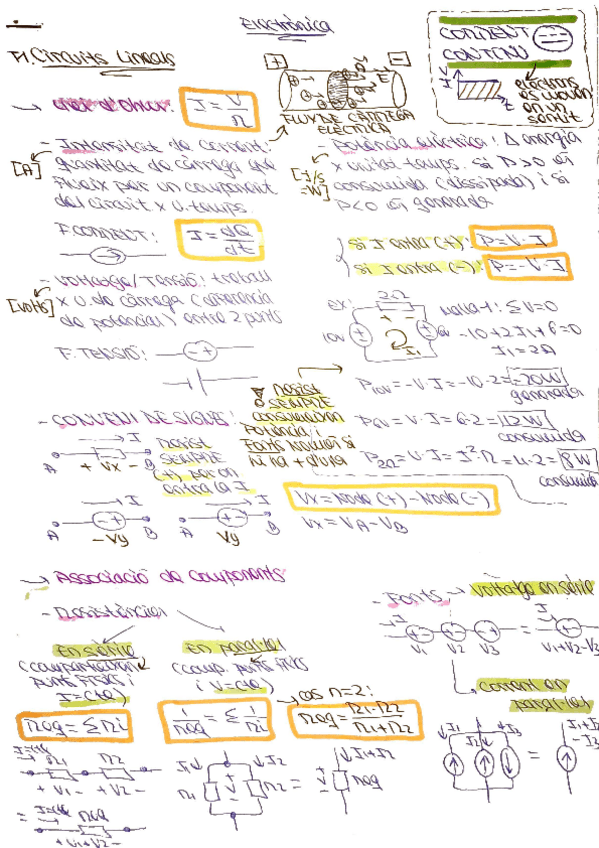 Electrònica
T1. Circuits Lineals
CORRENT
CONTINU
V
I
t
electrons
es mouen
en un
sentit
+
-
FLUX DE CÀRREGA
ELÈCTRICA
→ Llei d'Ohm: I = V/R
- Intensitat de corrent:
[A]
quantitat de càrrega que
flueix per un component
del circuit x u. temps.
F. CORRENT:
I = dQ/dt
- Potència elèctrica: Δ energia
[J/s = W]
x unitat temps. si P>0 és
consumida (dissipada) i si
P<0 és generada
si I entra (+): P = V·I
si I entra (-): P = -V·I
- Voltatge/Tensió: treball
[volts]
x u. de càrrega (diferència
de potencial) entre 2 punts
F. TENSIÓ:
ex:
2Ω
10V
6V
I1
malla 1: ΣV=0
-10+2I1+6=0
I1=2A
P10V = -V·I = -10·2 = -20W
generada
P6V = V·I = 6·2 = 12W
consumida
P2Ω = V·I = I²·R = 4·2 = 8W
consumida
- CONVENI DE SIGNES:
→ I
A + Vx - B
resist
SEMPRE
(+) per on
entra la I
resist
SEMPRE
consumeixen
potència i
fonts només si
hi ha + d'una
→ I
A -Vy B
→ I
A Vy B
Vx = Node (+) - Node (-)
Vx = VA - VB
→ Associació de components
- Resistències
En sèrie
(comparteixen
punts físics i
I = cte)
Req = ΣRi
En paral·lel
(comp. punts físics
i V = cte)
1/Req = Σ 1/Ri
→ cas n=2:
Req = R1·R2/R1+R2
I=cte
R1 R2
+ V1 - + V2 -
= I=cte Req
+ V1+V2 -
I1 I2
R1 R2
=
I1+I2
Req
- Fonts → voltatge en sèrie
I
V1 V2 V3
=
I
V1+V2-V3
corrent en
paral·lel
I1 I2 I3
=
I1+I2
-I3